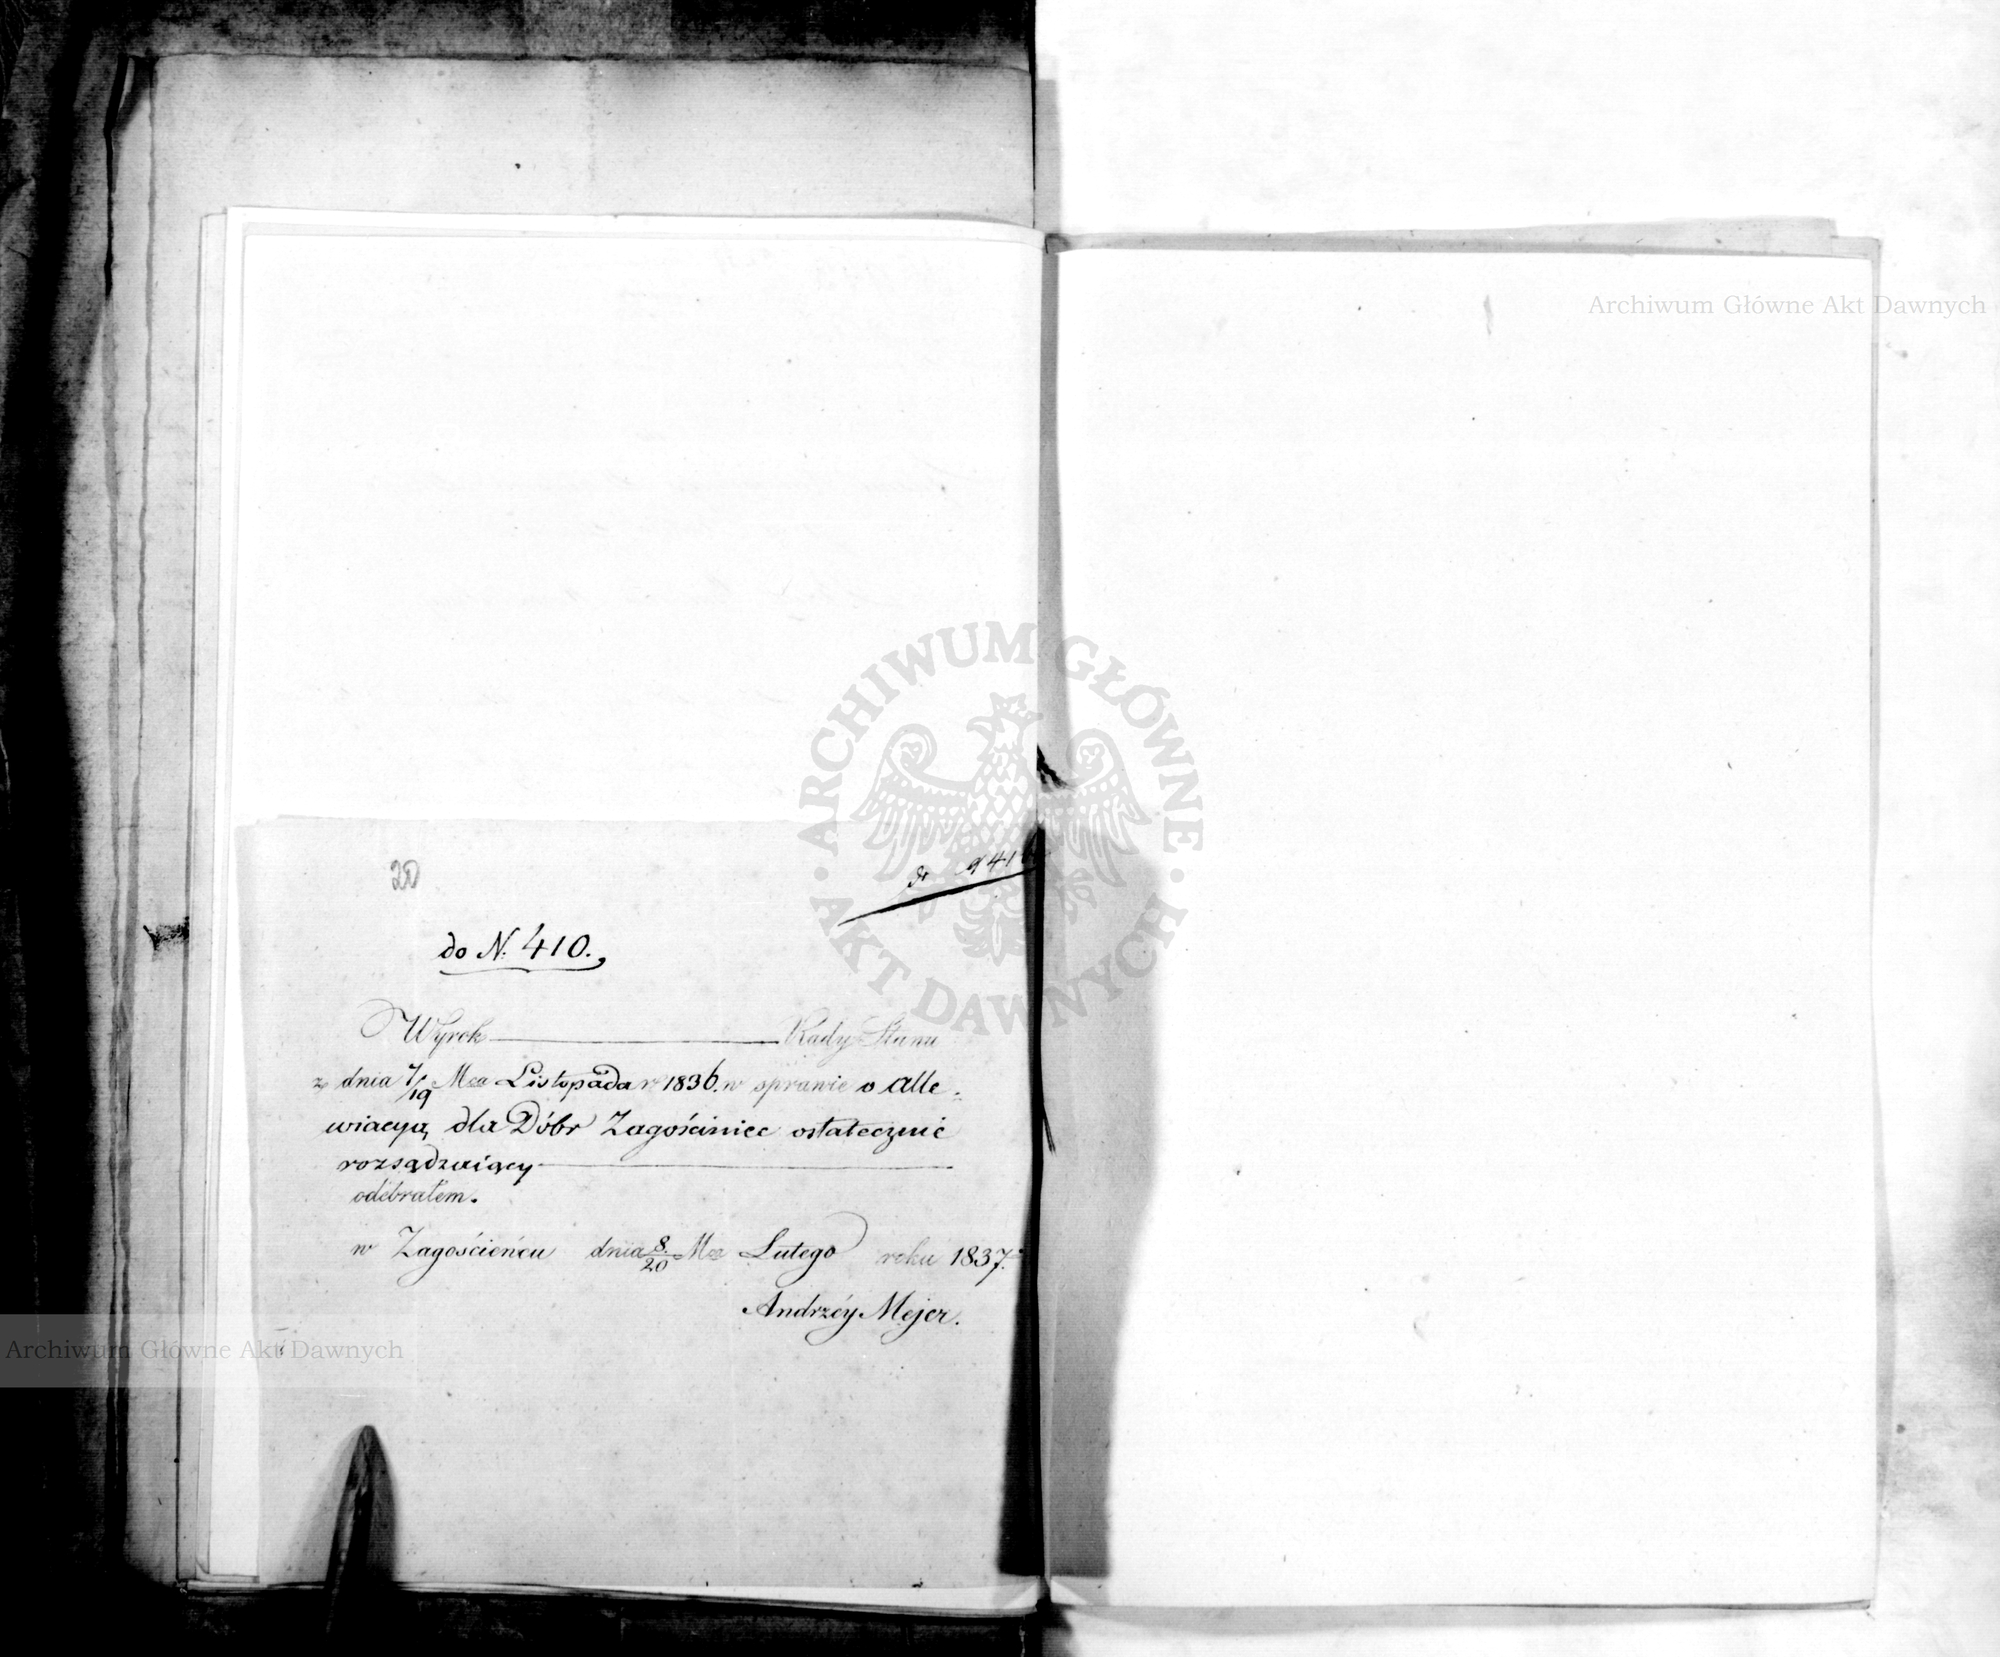 Archiwum Główne Akt Dawnych
ARCHIWUM GŁÓWNE
AKT DAWNYCH
20
do N. 410.
Wyrok Rady Stanu
z dnia 7/19 Mca Listopada r. 1836. w sprawie o alle-
wiacyą dla Dóbr Zagościniec ostatecznie
rozsądzaiący
odebrałem.
w Zagościeńcu dnia 8/20 Mca Lutego roku 1837.
Andrzéy Mejer.
Archiwum Główne Akt Dawnych